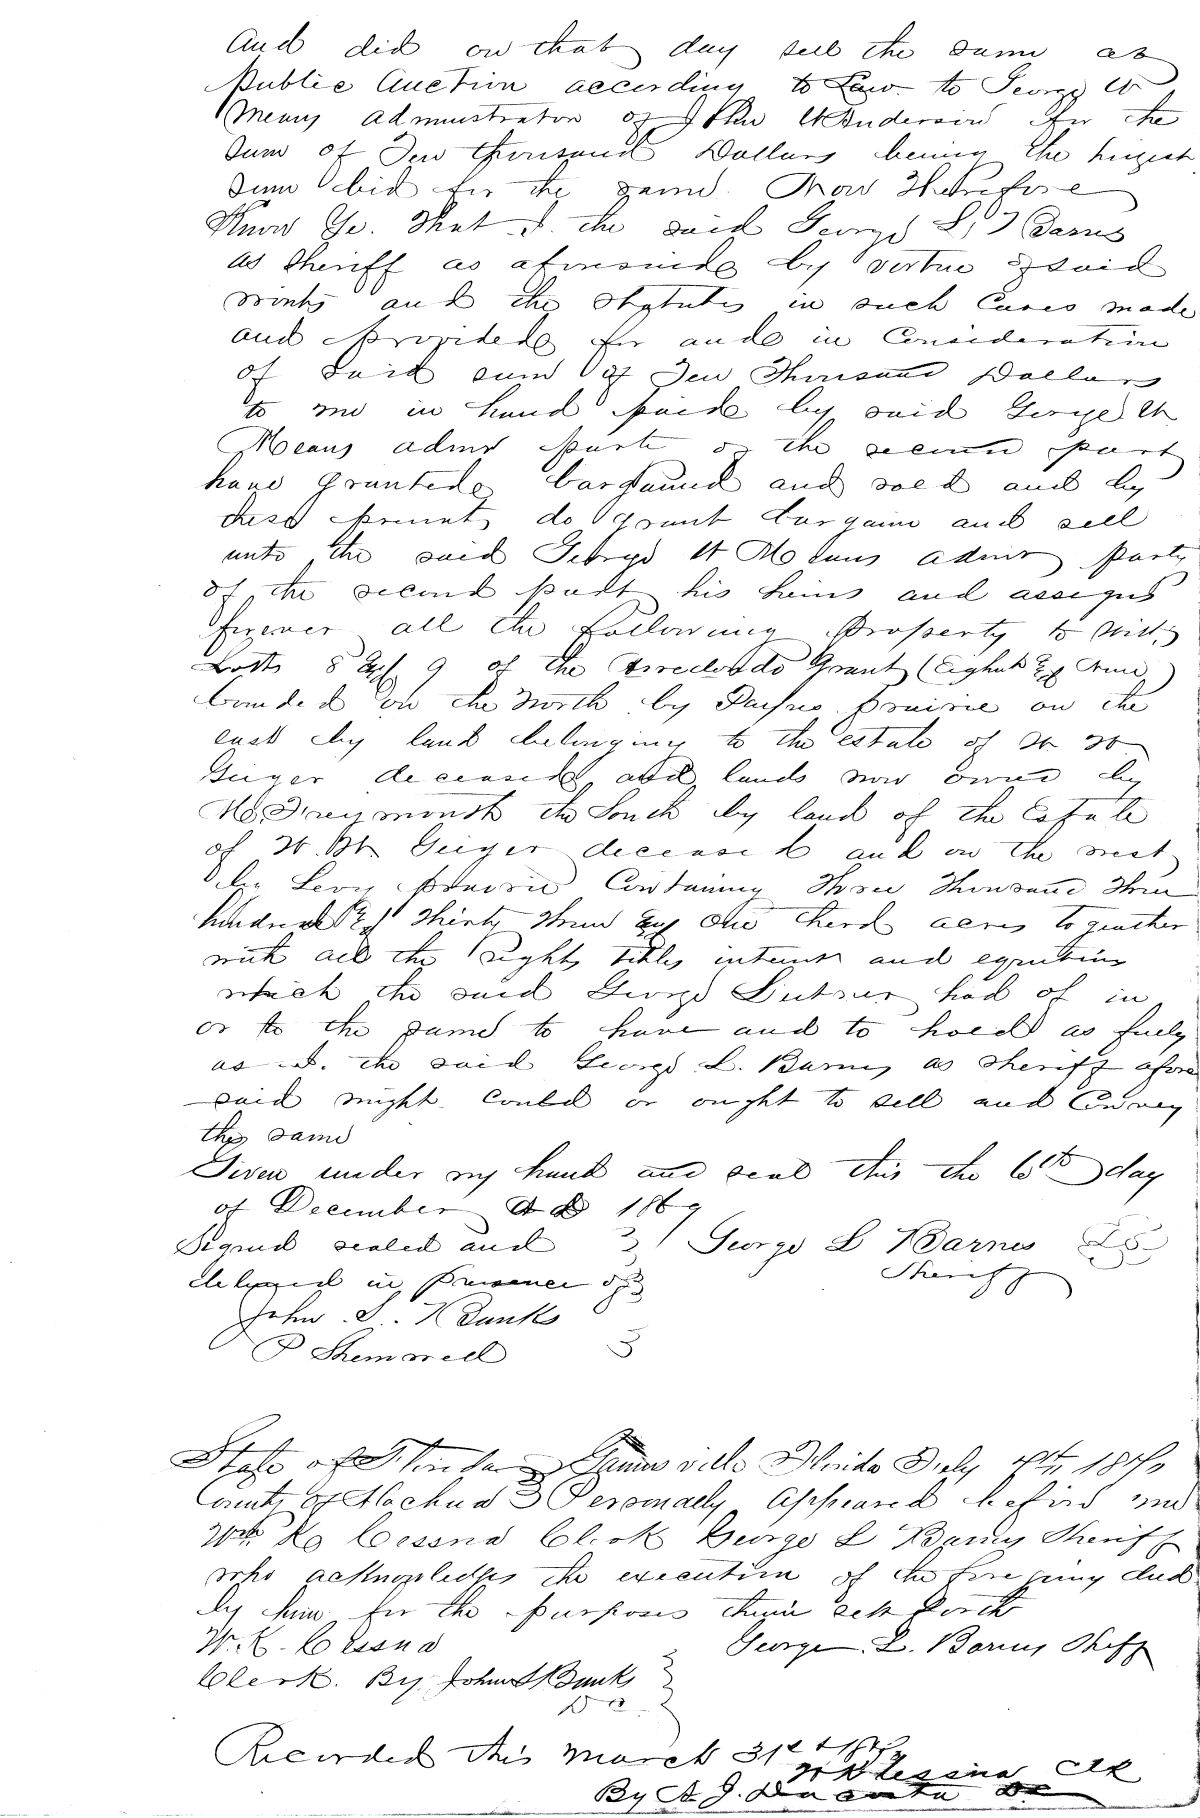 And did on that day sell the same at
Public Auction according to Law to George W
Means administrator of John W Anderson for the
sum of Ten thousand Dollars being the highest
sum bid for the same. Now Therefore
Know Ye. That I. the said George L. Barnes
as Sheriff as aforesaid by virtue of said
writs and the Statutes in such Cases made
and provided for and in Consideration
of said sum of Ten Thousand Dollars
to me in hand paid by said George W
Means admr party of the second part
have Granted bargained and sold and by
these presents do grant bargain and sell
unto the said George W Means admr party
of the second part his heirs and assigns
forever all the following Property to wit;
Lotts 8 & 9 of the Arredondo Grant (Eight & Nine)
bounded on the North by Paynes Prairie on the
east by land belonging to the estate of W W
Geiger deceased and lands now owned by
the South by land of the Estate
of W. W. Geiger deceased and on the west
by Levy prairie Containing Three Thousand Three
hundred & Thirty Three & One therd acres to geather
with all the rights titles interest and equities
which the said George had of in
or to the same to have and to hold as fuly
as I. the said George L. Barnes as Sheriff afore
-said might could or ought to sell and Convey
the same
Given under my hand and seal this the 6th day
of December A D 1869
Signed sealed and George L Barnes LS
delivered in presence of Sheriff
John S. Banks
P Shemwell
State of Florida Gainesville Florida July
County of Alachua Personally Appeared before me
Wm K Cessna Clerk George L Barnes Sheriff
who acknowledges the execution of the foregoing deed
by him for the purposes therein sett forth
W. K. Cessna George. L. Barnes Sheff
Clerk. By John S Banks
DC
Recorded this March 31st
W K Cessna Clk
By A. J. DaCosta DC